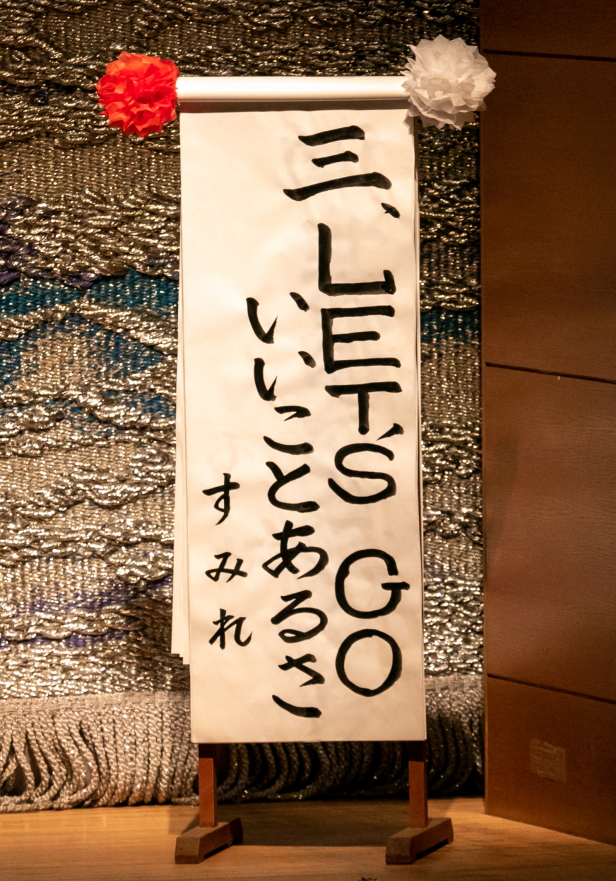 三、LET'S GO
いいことあるさ
すみれ